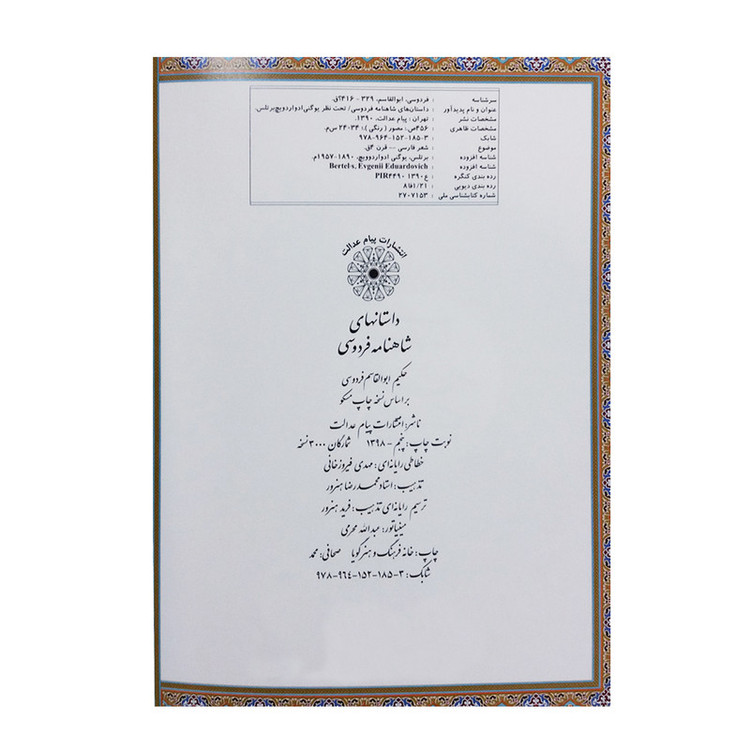 سرشناسه : فردوسی، ابوالقاسم، ۳۲۹ - ۴۱۶؟ق.
عنوان و نام پدیدآور : داستان‌های شاهنامه فردوسی/ تحت نظر یوگنی‌ادواردویچ‌برتلس.
مشخصات نشر : تهران : پیام عدالت، ۱۳۹۰.
مشخصات ظاهری : ۴۵۶ص: مصور ( رنگی )؛ ۳۴×۲۴ س‌م.
شابک : ۹۷۸-۹۶۴-۱۵۲-۱۸۵-۳
موضوع : شعر فارسی -- قرن ۴ق.
شناسه افزوده : برتلس، یوگنی ادواردوویچ، ۱۸۹۰-۱۹۵۷م.
شناسه افزوده : Bertel's, Evgenii Eduardovich
رده بندی کنگره : PIR۴۴۹۰ ۱۳۹۰ ع
رده بندی دیویی : ۸فا۱/۲۱
شماره کتابشناسی ملی : ۲۷۰۷۱۵۳
انتشارات پیام عدالت
داستانهای
شاهنامه فردوسی
حکیم ابوالقاسم فردوسی
بر اساس نسخه چاپ مسکو
ناشر: انتشارات پیام عدالت
نوبت چاپ: پنجم - ۱۳۹۸ شمارگان ۳۰۰۰ نسخه
خطاطی رایانه‌ای: مهدی فیروزخانی
تذهیب: استاد محمدرضا هنرور
ترسیم رایانه‌ای تذهیب: فرید هنرور
مینیاتور: عبدالله محرمی
چاپ: خانه فرهنگ و هنر گویا صحافی: محمد
شابک: ۳-۱۸۵-۱۵۲-۹۶۴-۹۷۸